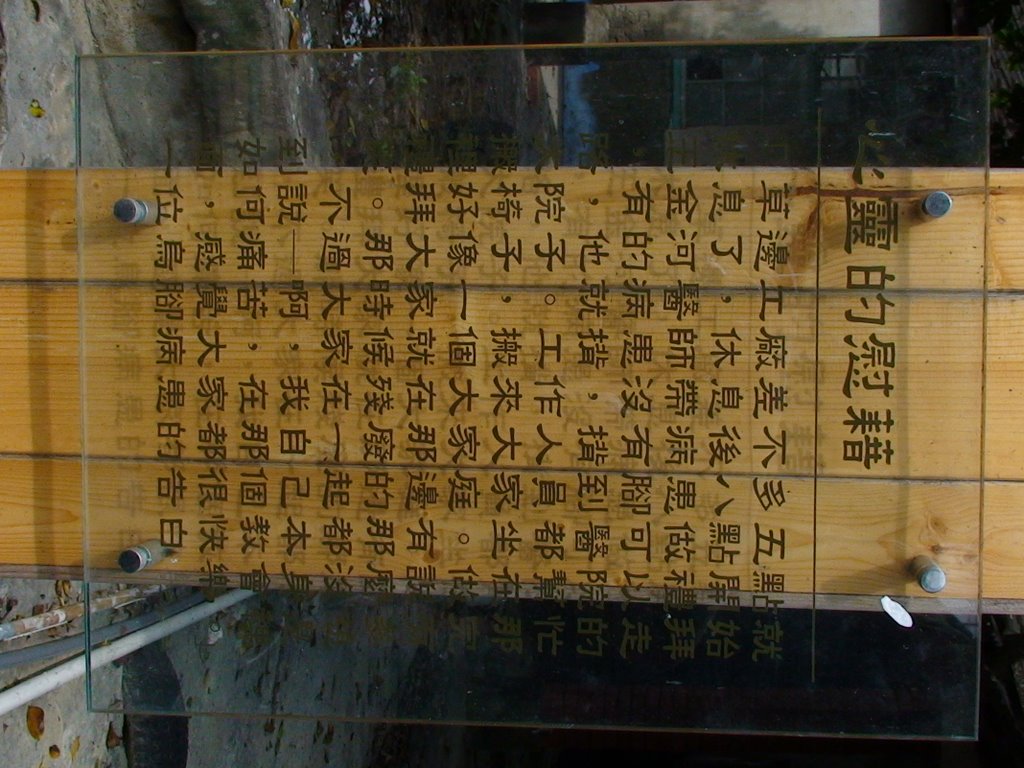 心靈的慰藉
草邊工廠差不多五點就
休息了，休息後八點開始
王金河醫師帶病患做禮拜
，有的病患沒有腳可以走
路，他就揹，揹到醫院的
大院子。工作人員都幫忙
搬椅子，搬來大家坐在那
裡好像一個大家庭。做完
禮拜大家就在那邊有說有
笑。那時候殘廢的那麼
不過大家在一起都沒
到說—啊，我自己本身
如何痛苦，在那個教會
面，感覺大家都很快樂。
一位烏腳病患的告白